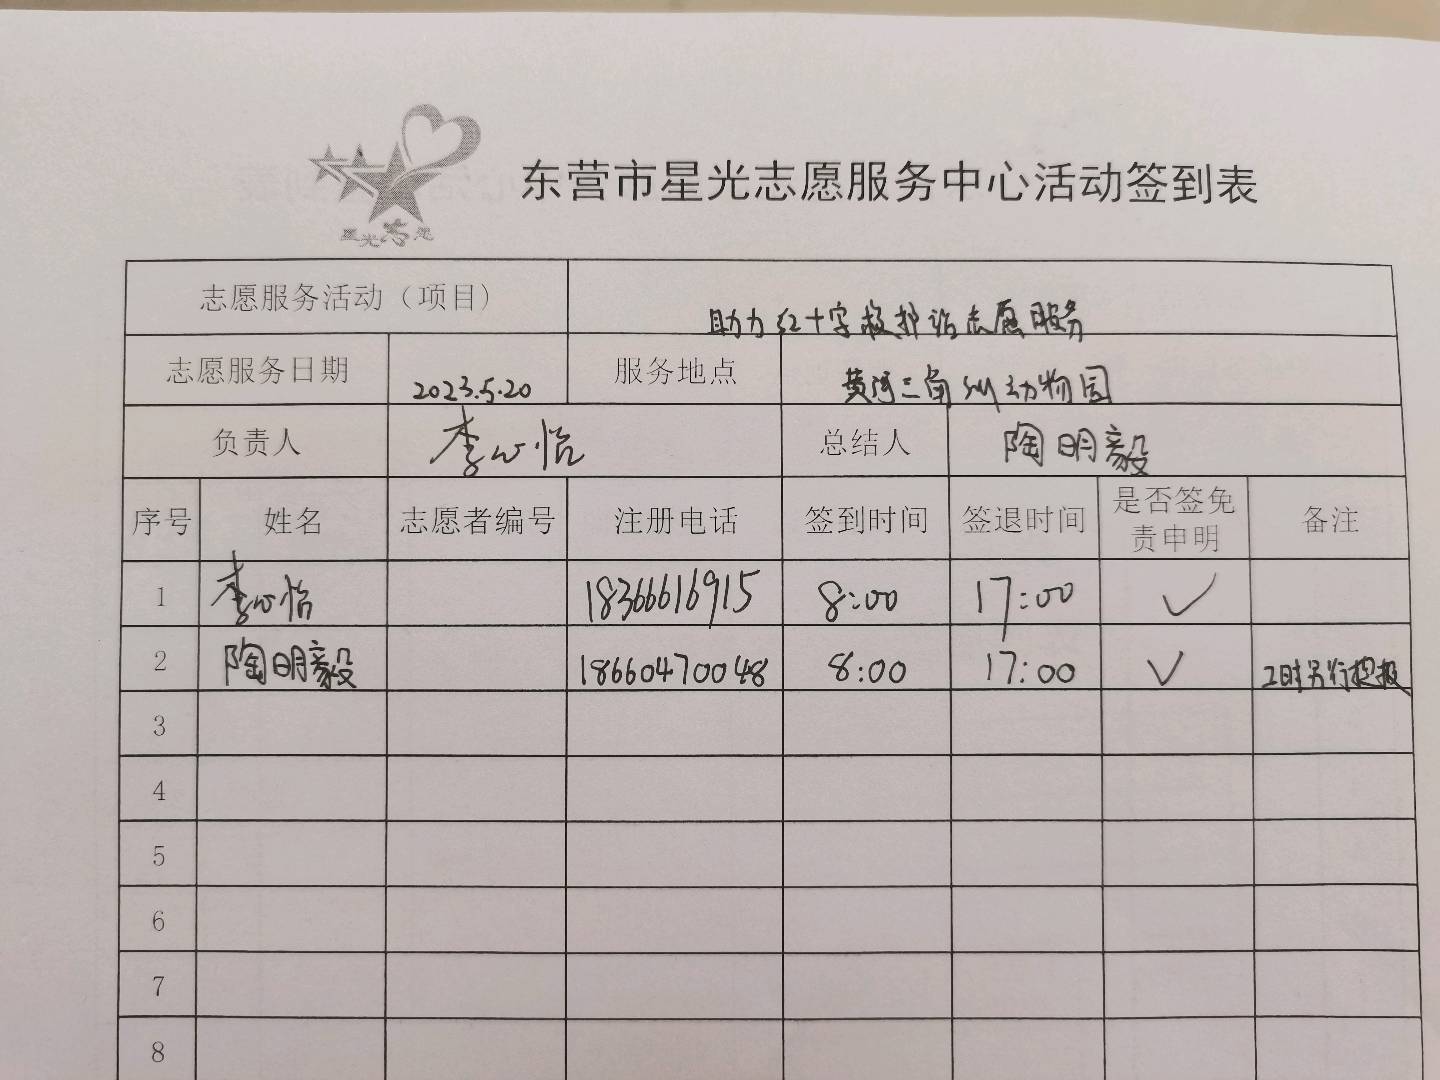 星光志愿
东营市星光志愿服务中心活动签到表
志愿服务活动（项目） 助力红十字救护站志愿服务
志愿服务日期 2023.5.20 服务地点 黄河三角州动物园
负责人 李心怡 总结人 陶明毅
序号 姓名 志愿者编号 注册电话 签到时间 签退时间 是否签免责申明 备注
1 李心怡 18366616915 8:00 17:00 ✓
2 陶明毅 18660470048 8:00 17:00 ✓ 工时另行提报
3
4
5
6
7
8